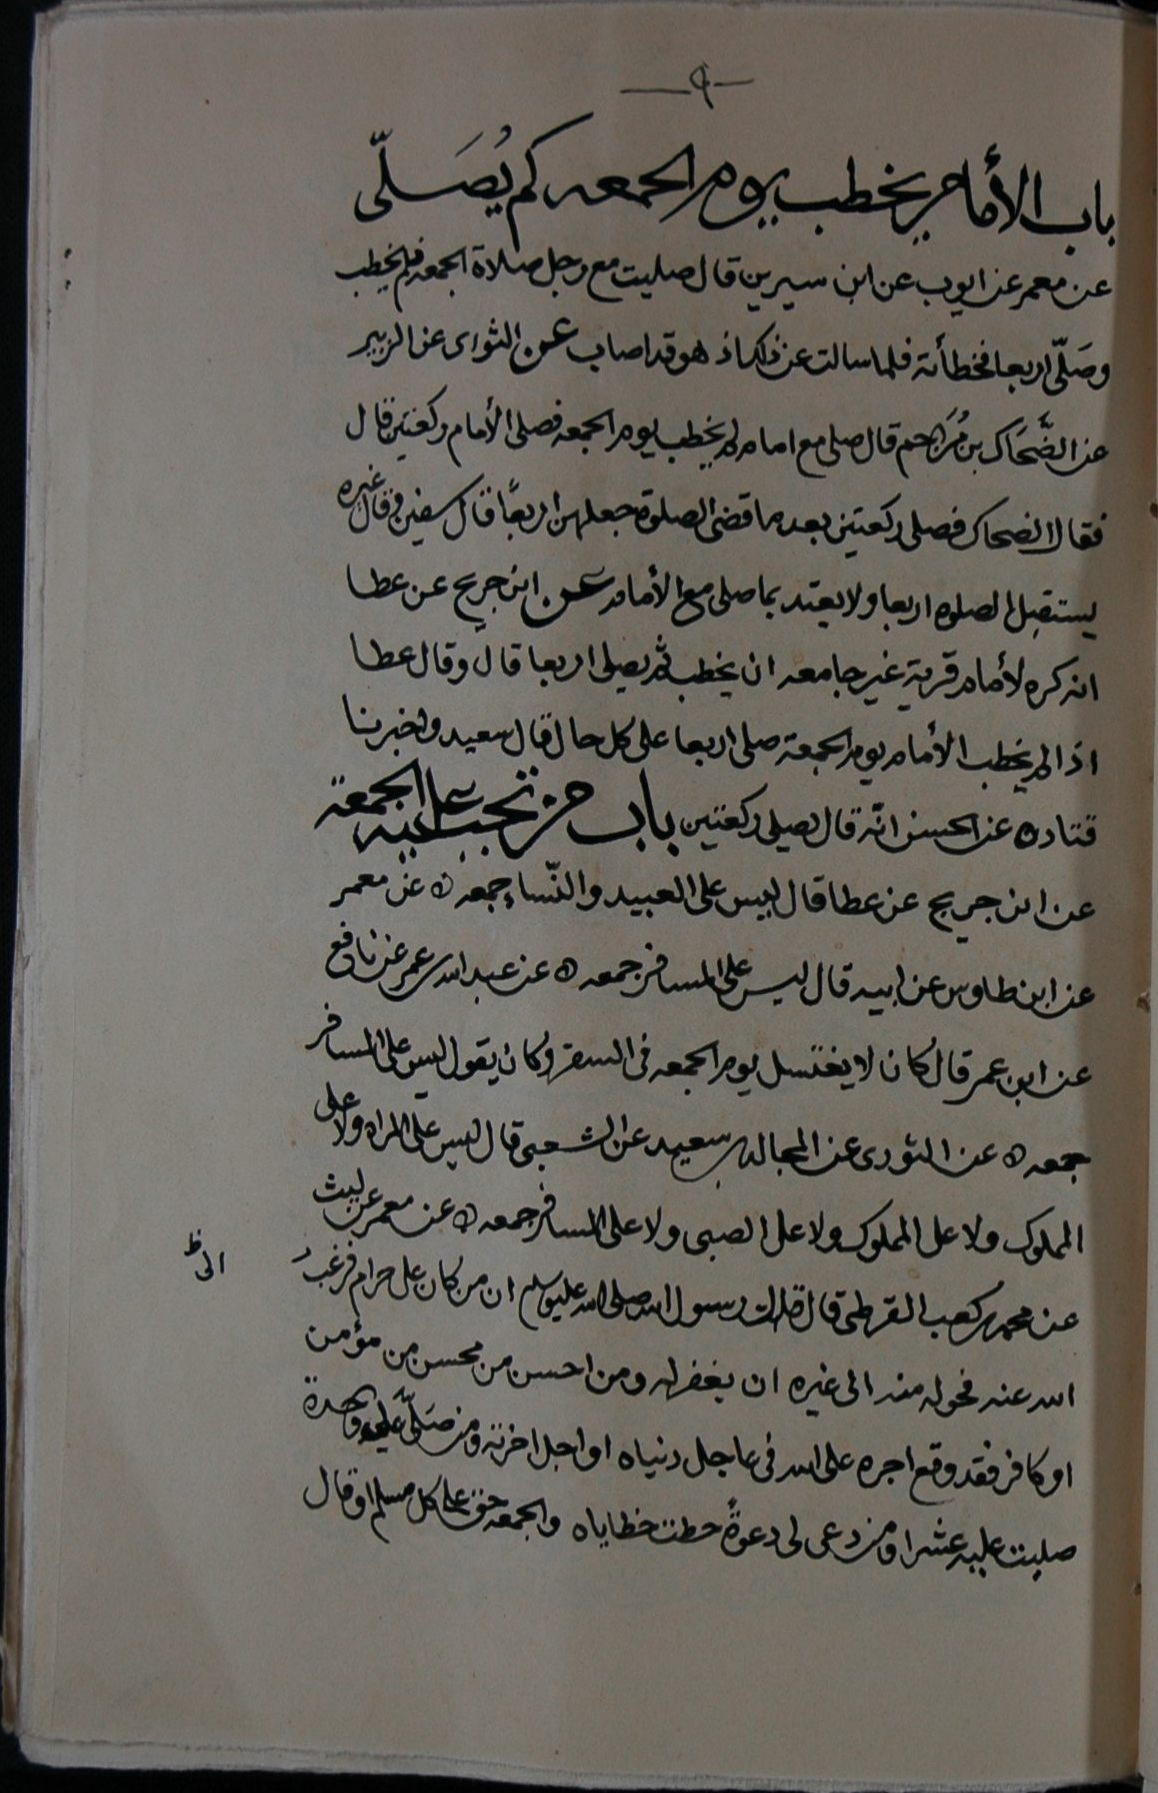 —٩—
باب الأمام يخطب يوم الجمعه كم يُصَلّى
عن معمر عن ايوب عن ابن سيرين قال صليت مع رجل صلاة الجمعه فلم يخطب
وصَلّى اربعا فخطأته فلما سالت عن ذلك اذ هو قد اصاب عن الثورى عن الزبير
عن الضَّحَاك بن مُزَاحم قال صلى مع امام لم يخطب يوم الجمعه فصلى الأمام ركعتين قال
فقال الضحاك فصلى ركعتين بعد ما قضى الصلوة جعلهن اربعًا قال سفين وقال غيره
يستقبل الصلوه اربعا ولا يعتد بما صلى مع الأمام عن ابن جريج عن عطا
انه كره لأمام قرية غير جامعه ان يخطب ثم يصلى اربعا قال وقال عطا
اذا لم يخطب الأمام يوم الجمعة صلى اربعا على كل حال قال سعيد واخبرنا
قتاده عن الحسن انّه قال يصلى ركعتين باب من تجب عليه الجمعة
عن ابن جريج عن عطا قال ليس على العبيد والنّساء جمعه ٥ عن معمر
عن ابن طاوس عن ابيه قال ليس على المسافر جمعه ٥ عن عبد الله بن عمر عن نافع
عن ابن عمر قال كان لا يغتسل يوم الجمعه فى السفر وكان يقول ليس على المسافر
جمعه ٥ عن الثورى عن المجالد بن سعيد عن الشعبى قال ليس على المراه ولا على
المملوك ولا على المملوك ولا على الصبى ولا على المسافر جمعه ٥ عن معمر عن ليث
عن محمد بن كعب القرظى قال قال رسول الله صلى الله عليه وسلم ان من كان على حرام فرغبُ
الله عنه فحوله منه الى غيره ان يغفر له ومن احسن من محسن من مؤمن
او كافر فقد وقع اجره على الله فى عاجل دنياه او اجل اخرته ومن صَلّى على واحدة
صليت عليه عشرا ومن دعى لى دعوةً حطت خطاياه والجمعه حق على كل مسلم او قال